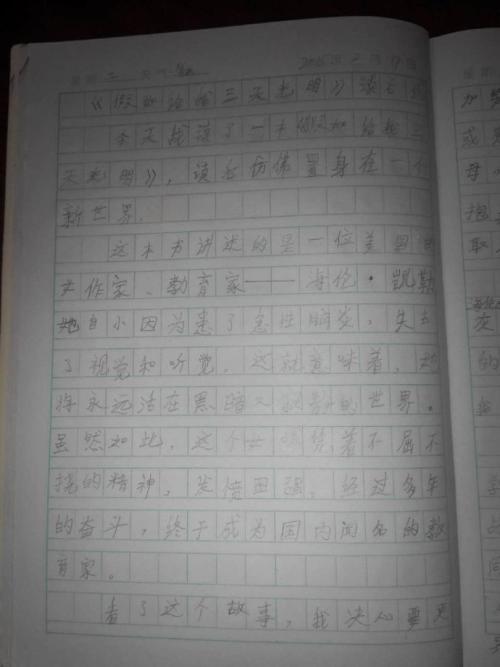 星期二 天气 2015年 月17日
《假如给我三天光明》读后
今天我读了一本《假如给我三
天光明》，读后仿佛置身在一个
新世界。
这本书讲述的是一位美国
女作家、教育家——海伦·凯勒
她自小因为患了急性脑炎，失去
了视觉和听觉。这就意味着，她
将永远活在黑暗又寂静的世界。
虽然如此，这个女 凭着不屈不
挠的精神，发愤图强，经过多年
的奋斗，终于成为国内闻名的教
育家。
看了这个故事，我决心要更
加
或
母
抱
取
灾
的